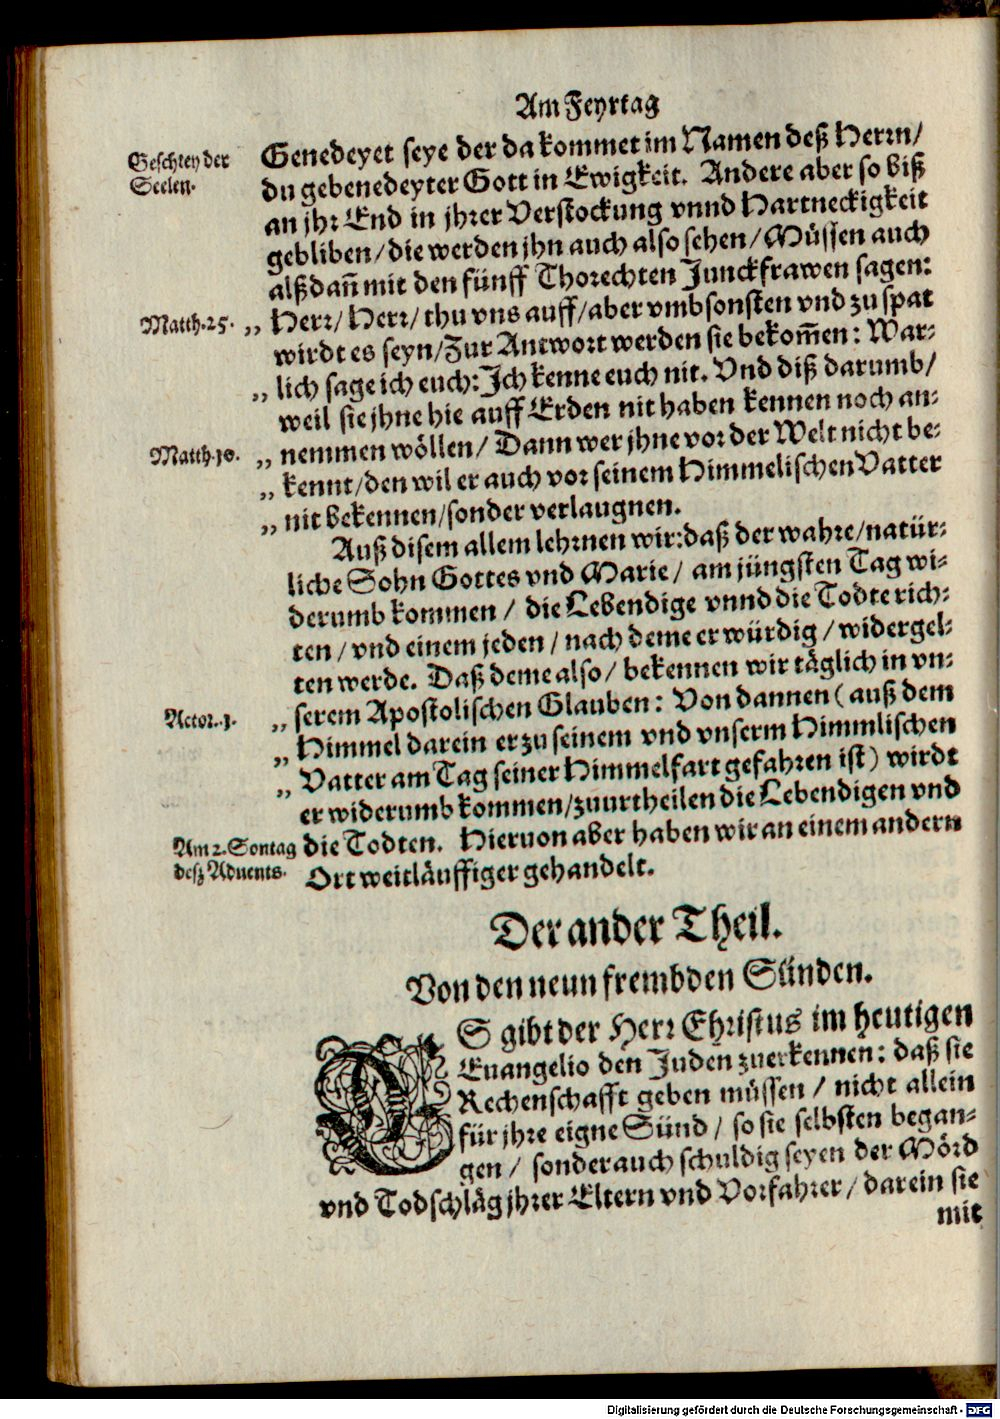 Am Feyrtag
Geschrey der
Seelen.
Genedeyet seye der da kommet im Namen deß Herrn/
du gebenedeyter Gott in Ewigkeit. Andere aber so biß
an jhr End in jhrer Verstockung vnnd Hartneckigkeit
gebliben/ die werden jhn auch also sehen/ Müssen auch
alßdañ mit den fünff Thorechten Junckfrawen sagen:
Matth.25. „ Herr/ Herr/ thu vns auff/ aber vmbsonsten vnd zu spat
wirdt es seyn/ Zur Antwort werden sie bekom̃en: War-
„ lich sage ich euch: Ich kenne euch nit. Vnd diß darumb/
weil sie jhne hie auff Erden nit haben kennen noch an-
Matth.10. „ nemmen wöllen/ Dann wer jhne vor der Welt nicht be-
„ kennt/ den wil er auch vor seinem Himmelischen Vatter
„ nit bekennen/ sonder verlaugnen.
Auß disem allem lehrnen wir: daß der wahre/ natür-
liche Sohn Gottes vnd Marie/ am jüngsten Tag wi-
derumb kommen/ die Lebendige vnnd die Todte rich-
ten/ vnd einem jeden/ nach deme er würdig/ widergel-
ten werde. Daß deme also/ bekennen wir täglich in vn-
Actor.1. „ serem Apostolischen Glauben: Von dannen (auß dem
„ Himmel darein er zu seinem vnd vnserm Himmlischen
„ Vatter am Tag seiner Himmelfart gefahren ist) wirdt
er widerumb kommen/ zuurtheilen die Lebendigen vnd
Am 2. Sontag die Todten. Hieruon aber haben wir an einem andern
deß Aduents. Ort weitläuffiger gehandelt.
Der ander Theil.
Von den neun frembden Sünden.
ES gibt der Herr Christus im heutigen
Euangelio den Juden zuerkennen: daß sie
Rechenschafft geben müssen/ nicht allein
für jhre eigne Sünd/ so sie selbsten began-
gen/ sonder auch schuldig seyen der Mörd
vnd Todschläg jhrer Eltern vnd Vorfahrer/ darein sie
mit
Digitalisierung gefördert durch die Deutsche Forschungsgemeinschaft - DFG